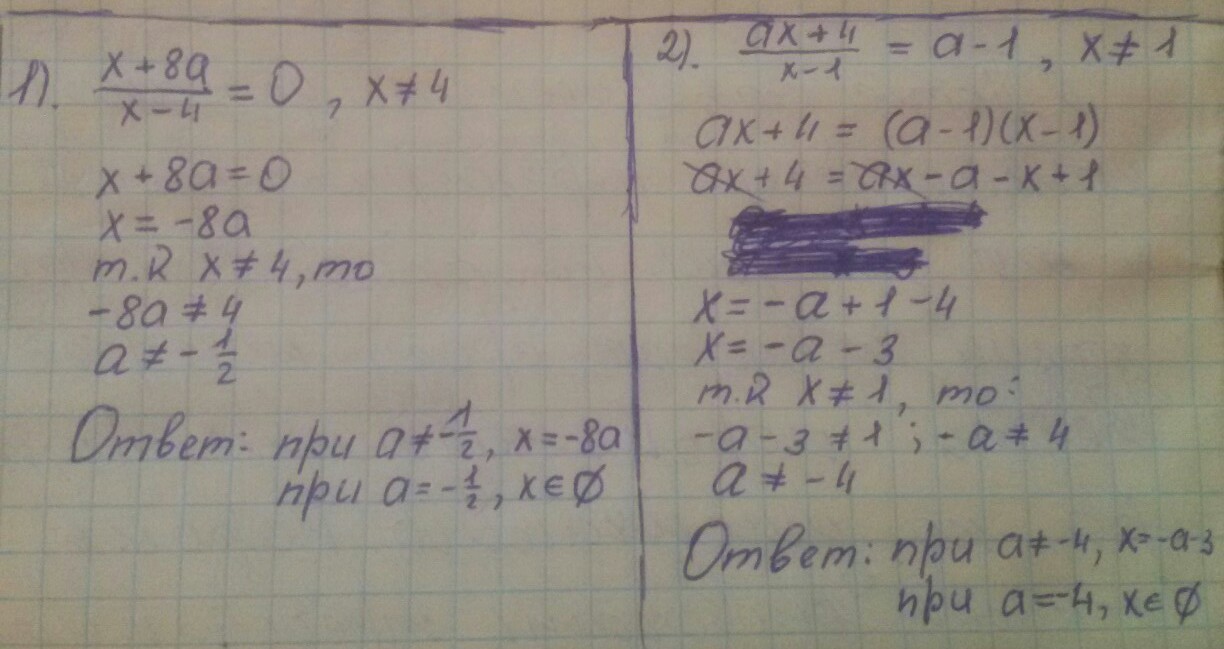 1). (x+8a)/(x-4) = 0, x≠4
x+8a=0
x=-8a
т.к x≠4, то
-8a≠4
a≠-1/2
Ответ: при a≠-1/2, x=-8a
при a=-1/2, x∈∅
2). (ax+4)/(x-1) = a-1, x≠1
ax+4=(a-1)(x-1)
ax+4=ax-a-x+1
x=-a+1-4
x=-a-3
т.к x≠1, то:
-a-3≠1; -a≠4
a≠-4
Ответ: при a≠-4, x=-a-3
при a=-4, x∈∅